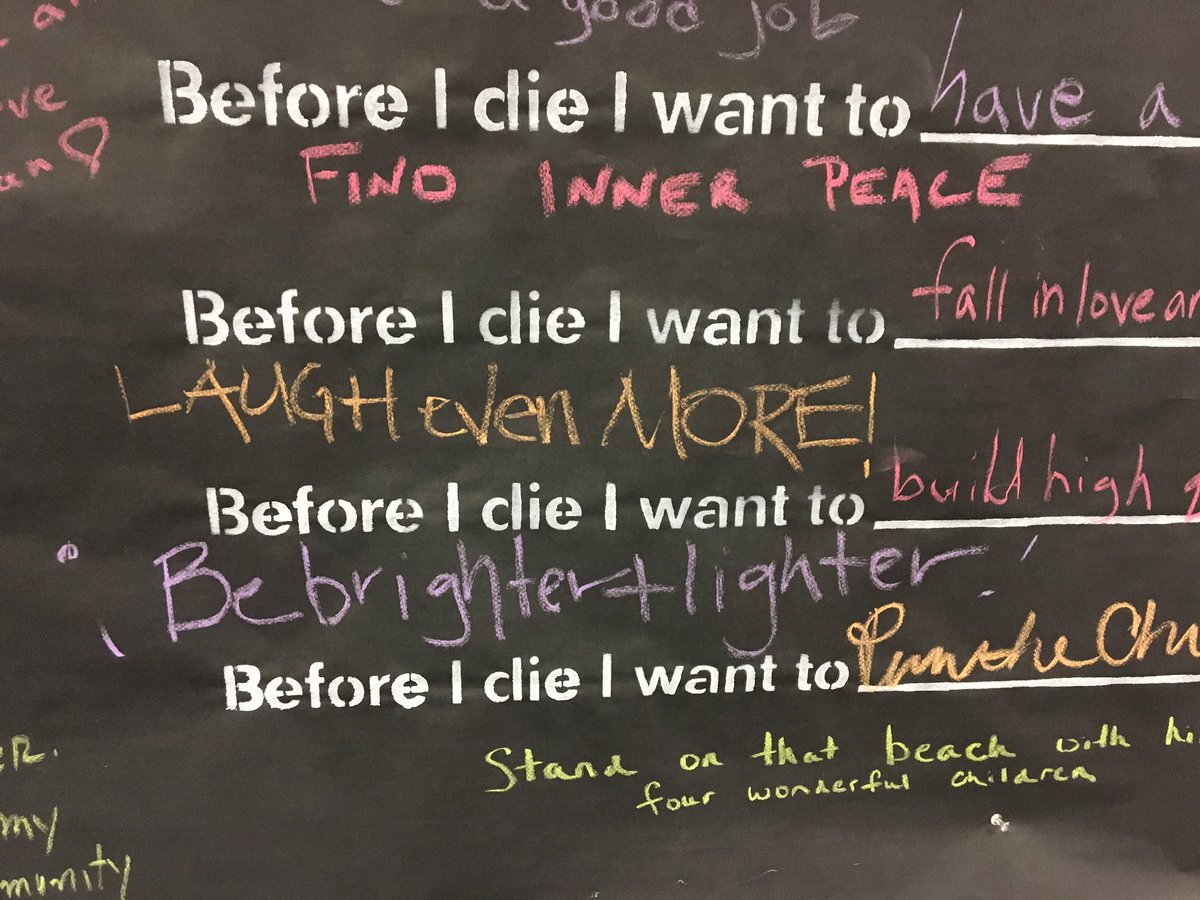 a good job
Before I die I want to have a
FIND INNER PEACE
Before I die I want to fall in love
LAUGH even MORE!
Before I die I want to build high
¡Be brighter + lighter!
Before I die I want to
Stand on that beach with
four wonderful children
my